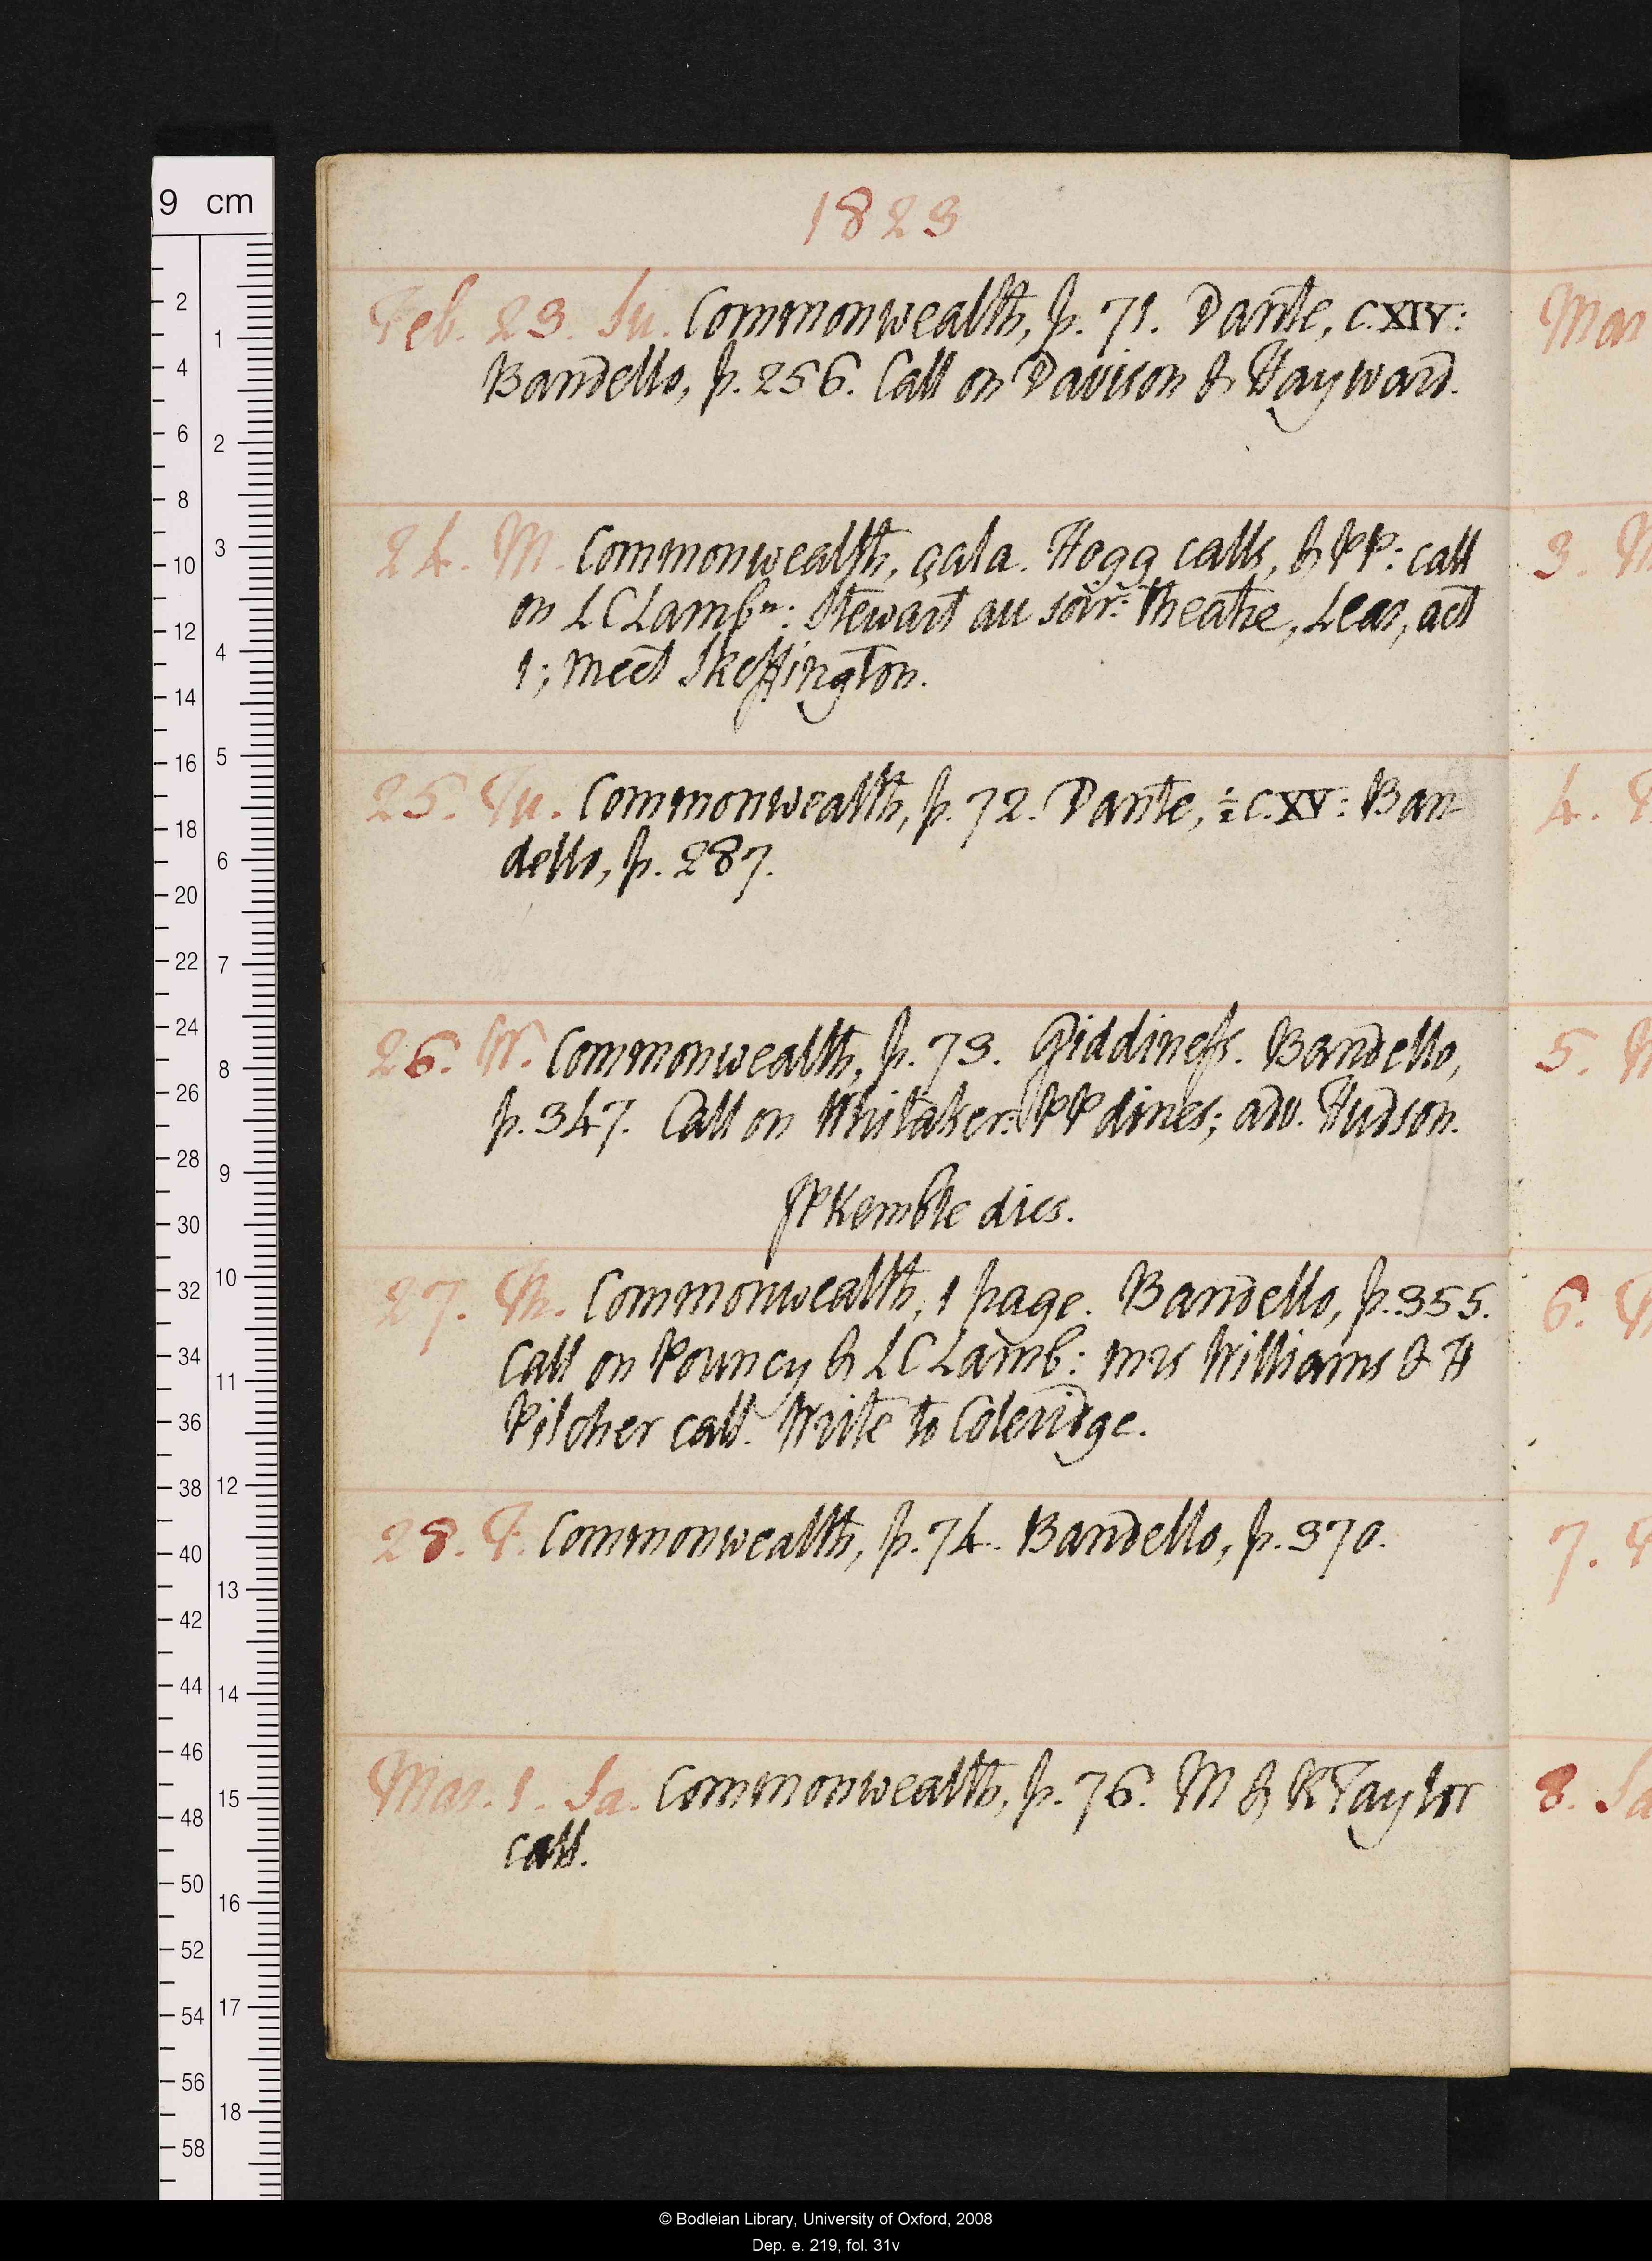 1823
Feb. 23. Su. Commonwealth, p. 71. Dante, c. XIV:
Bandello, p. 256. Call on Davison & Hayward.
24. M. Commonwealth, çala. Hogg calls, & PP: call
on LCLambn: Stewart au soir: theatre, Lear, act
1; meet Skeffington.
25. Tu. Commonwealth, p. 72. Dante, ½ c. XV: Ban
dello, p. 287.
26. W. Commonwealth, p. 73. Giddiness. Bandello,
p. 347. Call on Whitaker: PP dines; adv. Hudson.
JPKemble dies.
27. Th. Commonwealth, 1 page. Bandello, p. 355.
Call on Pouncy & LCLamb: mrs Williams & H
Pilcher call. Write to Coleridge.
28. F. Commonwealth, p. 74. Bandello, p. 370.
Mar. 1. Sa. Commonwealth, p. 76. M & RTaylor
call.
Mar
3. M
4. T
5. W
6. T
7. F
8. Sa
9 cm
2
4
6
8
10
12
14
16
18
20
22
24
26
28
30
32
34
36
38
40
42
44
46
48
50
52
54
56
58
1
2
3
4
5
6
7
8
9
10
11
12
13
14
15
16
17
18
© Bodleian Library, University of Oxford, 2008
Dep. e. 219, fol. 31v